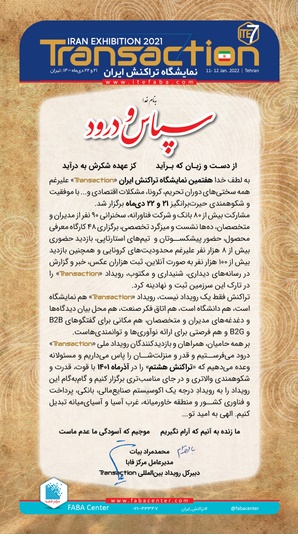 IRAN EXHIBITION 2021
Transaction
ITE7
نمایشگاه تراکنش ایران
11- 12 Jan. 2022 | Tehran
۲۱ و ۲۲ دی‌ماه ۱۴۰۰، تهران
www.itefaba.com
بنام خدا
سپاس و درود
از دست و زبان که برآید کز عهده شکرش به درآید
به لطف خدا هفتمین نمایشگاه تراکنش ایران «Transaction» علیرغم
همه سختی‌های دوران تحریم، کرونا، مشکلات اقتصادی و... با موفقیت
و شکوهمندی حیرت‌برانگیز ۲۱ و ۲۲ دی‌ماه برگزار شد.
مشارکت بیش از ۸۰ بانک و شرکت فناورانه، سخنرانی ۹۰ نفر از مدیران و
متخصصان، ده‌ها نشست و میزگرد تخصصی، برگزاری ۴۸ کارگاه معرفی
محصول، حضور پیشکسوتان و تیم‌های استارتاپی، بازدید حضوری
بیش از ۸ هزار نفر علیرغم محدودیت‌های کرونایی و همچنین بازدید
بیش از ۱۰۰ هزار نفر به صورت آنلاین، ثبت هزاران عکس، خبر و گزارش
در رسانه‌های دیداری، شنیداری و مکتوب، رویداد «Transaction» را
در تارک این سرزمین ثبت و نهادینه کرد.
تراکنش فقط یک رویداد نیست، رویداد «Transaction» هم نمایشگاه
است، هم دانشگاه است، هم اتاق فکر صنعت، هم محل بیان دیدگاه‌ها
و دغدغه‌های مدیران و متخصصان، هم مکانی برای گفتگوهای B2B
و G2B و هم فرصتی برای ارائه نوآوری‌ها و توانمندی‌هاست.
بر همه حامیان، همراهان و بازدیدکنندگان رویداد ملی «Transaction»
درود می‌فرستیم و قدر و منزلت‌شان را پاس می‌داریم و مسئولانه
وعده می‌دهیم که «تراکنش هشتم» را در آذرماه ۱۴۰۱ با قوت، قدرت و
شکوهمندی والاتری و در جای مناسب‌تری برگزار کنیم و گام‌به‌گام این
رویداد را به رویداد درجه یک اکوسیستم صنایع‌مالی، بانکی، پرداخت
و فناوری کشور و منطقه خاورمیانه، غرب آسیا و آسیای‌میانه تبدیل
کنیم. الهی به امید تو...
ما زنده به آنیم که آرام نگیریم موجیم که آسودگی ما عدم ماست
محمدمراد بیات
مدیرعامل مرکز فابا
دبیرکل رویداد بین‌المللی Transaction
www.fabacenter.com
FABA Center
@fabacenter